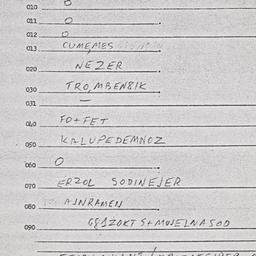 010 0
011 0
012 0
013 CUMEMES
020 NEZER
030 TRO,MBEN81K
031 —
040 FO+FET
050 KALUPEDEMNOZ
060 0
070 ERZOL SODINEJER
080 AJNRAMEN
090 681ZOKT S+MUJELNASOD